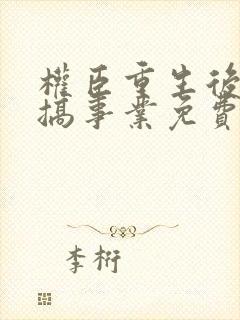 權臣重生後
搞事業免費
李桁